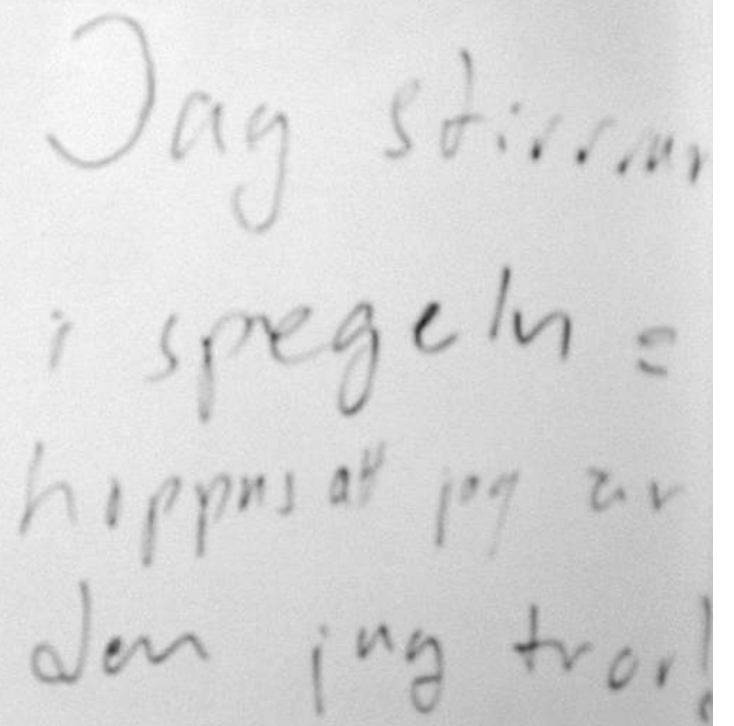 Jag stirrar
i spegeln =
hoppas att jag är
den jag tror!